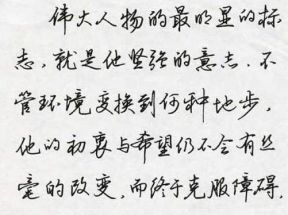 伟大人物的最明显的标
志，就是他坚强的意志．不
管环境变换到何种地步，
他的初衷与希望仍不会有丝
毫的改变，而终于克服障碍，